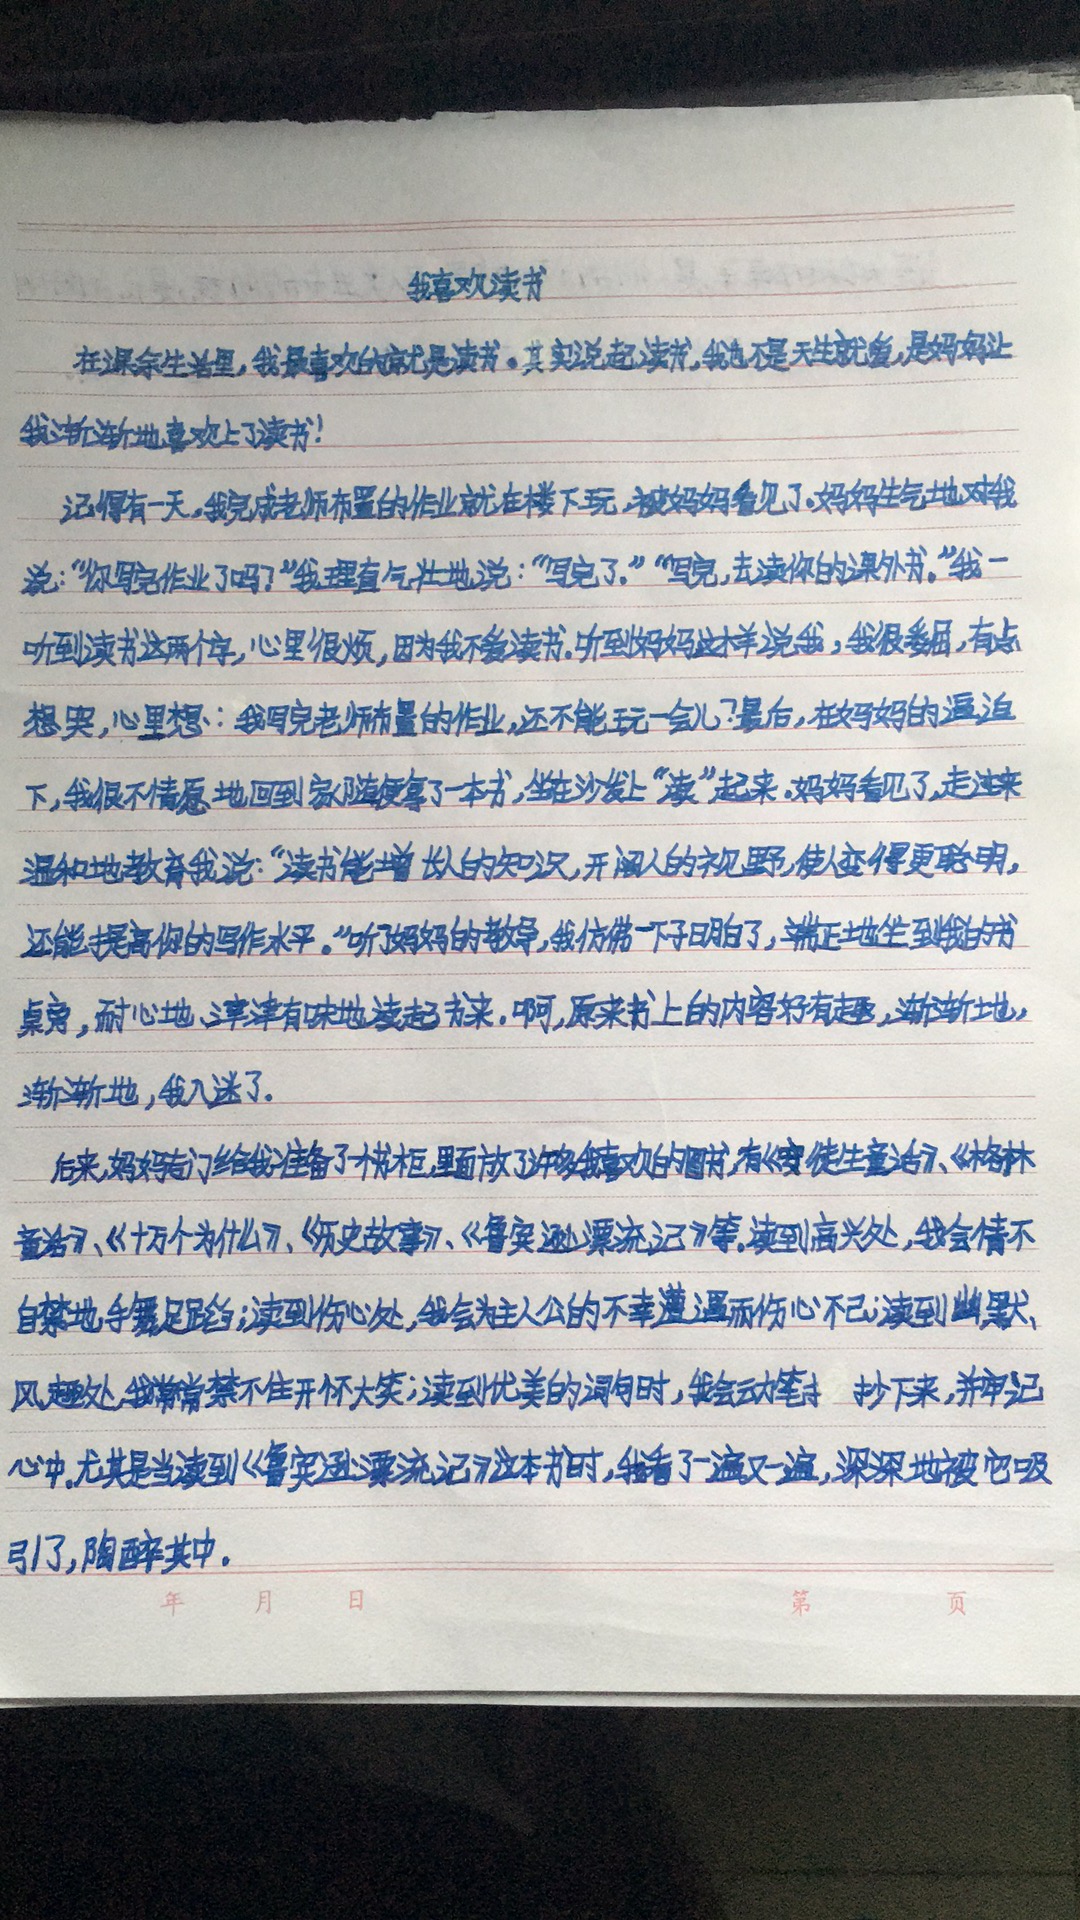 我喜欢读书
在课余生活里，我最喜欢的就是读书。其实说起读书，我也不是天生就爱，是妈妈让
我渐渐地喜欢上了读书！
记得有一天，我完成老师布置的作业就在楼下玩，被妈妈看见了。妈妈生气地对我
说：“你写完作业了吗？”我理直气壮地说：“写完了。”“写完，去读你的课外书。”我一
听到读书这两个字，心里很烦，因为我不爱读书。听到妈妈这样说我，我很委屈，有点
想哭，心里想：我写完老师布置的作业，还不能玩一会儿？最后，在妈妈的逼迫
下，我很不情愿地回到家随便拿了一本书，坐在沙发上“读”起来。妈妈看见了，走过来
温和地教育我说：“读书能增长人的知识，开阔人的视野，使人变得更聪明，
还能提高你的写作水平。”听了妈妈的教导，我仿佛一下子明白了，端正地坐到我的书
桌旁，耐心地、津津有味地读起书来。啊，原来书上的内容好有趣，渐渐地，
渐渐地，我入迷了。
后来，妈妈专门给我准备了个书柜，里面放了许多我喜欢的图书，有《安徒生童话》、《格林
童话》、《十万个为什么》、《历史故事》、《鲁宾逊漂流记》等。读到高兴处，我会情不
自禁地手舞足蹈；读到伤心处，我会为主人公的不幸遭遇而伤心不已；读到幽默、
风趣处，我常常禁不住开怀大笑；读到优美的词句时，我会动笔 抄下来，并牢记
心中。尤其是当读到《鲁宾逊漂流记》这本书时，我看了一遍又一遍，深深地被它吸
引了，陶醉其中。
年 月 日 第 页